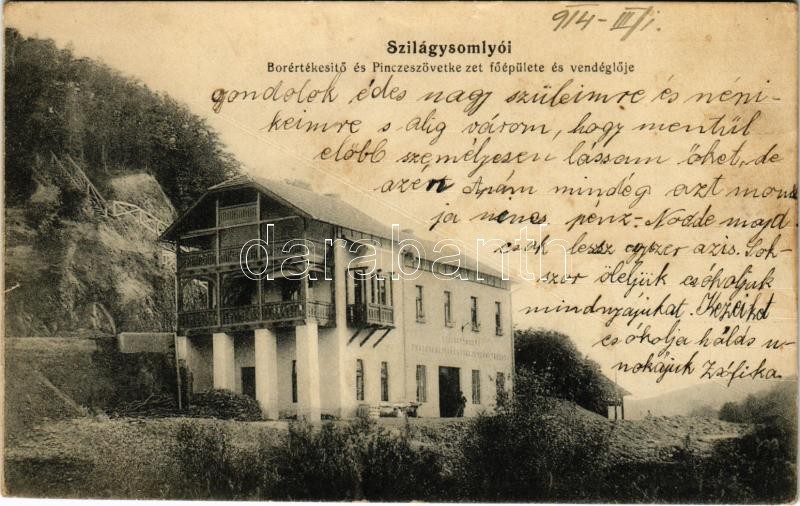 914-III/1.
Szilágysomlyói
Borértékesitő és Pinczeszövetkezet főépülete és vendéglője
gondolok édes nagy szüleimre és néni-
keimre s alig várom, hogy mentül
előbb személyesen lássam őket, de
azért Apám mindég azt mond
ja nincs pénz. Nodde majd
csak lessz egyszer az is. Sok-
szor öleljük csókoljuk
mindnyájukat. Kezeiket
csókolja hálás u-
nokájuk Zsófika.
darabanth